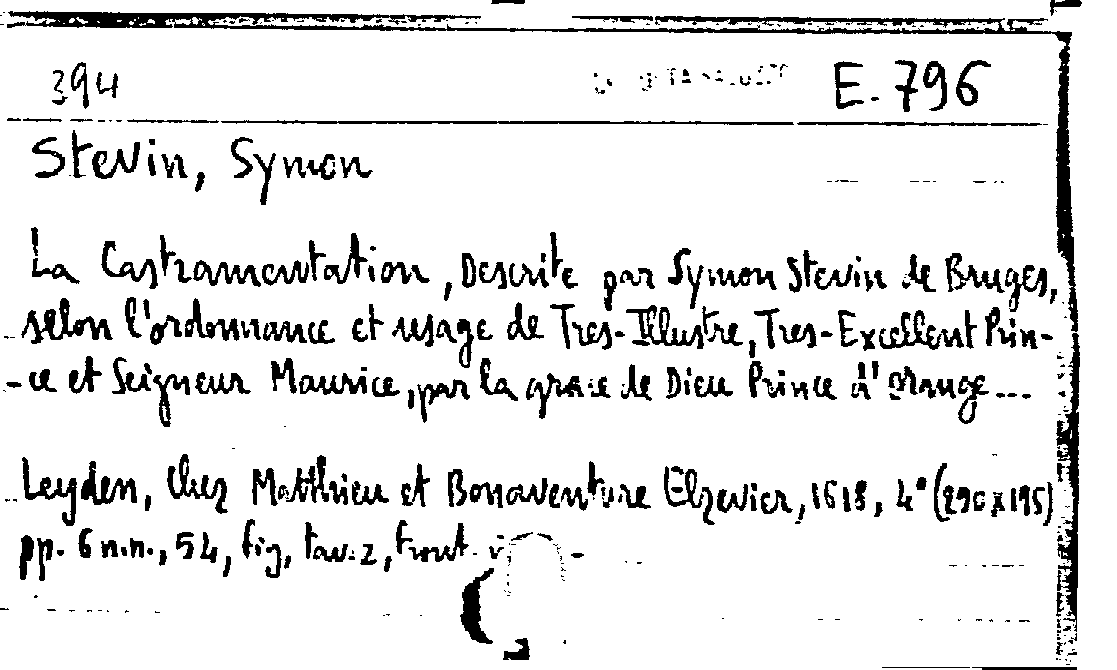 394 E. 796
Stevin, Symon
La Castramentation, Descrite par Symon Stevin de Bruges,
selon l'ordonnance et usage de Tres-Illustre, Tres-Excellent Prin-
-ce et Seigneur Maurice, par la grace de Dieu Prince d'Orange...
Leyden, Chez Matthieu et Bonaventure Elzevier, 1618, 4° (290x195)
pp. 6 n.n., 54, fig, tav. 2, front.